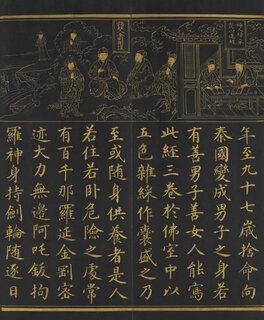 年至九十七歲捨命向
泰國變成男子之身若
有善男子善女人能寫
此經三卷於佛室中以
五色雜綵作囊盛之乃
至或随身供養者是人
若住若卧危險之處常
有百千那羅延金剛密
迹大力無邊阿吒鈸拘
羅神身持劍輪随逐日